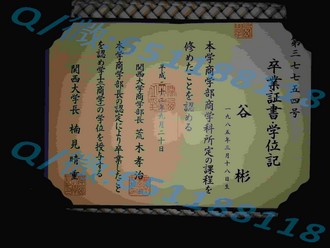 第三七七五四号
卒業証書・学位記
谷 彬
一九八五年二月十八日生
本学商学部商学科所定の課程を
修めたことを認める
平成二十六年三月二十日
関西大学商学部長 荒木孝治
本学商学部長の認定により卒業したこと
を認め学士(商学)の学位を授与する
関西大学長 楠見晴重
Q/微:551188118
Q/微:551188118